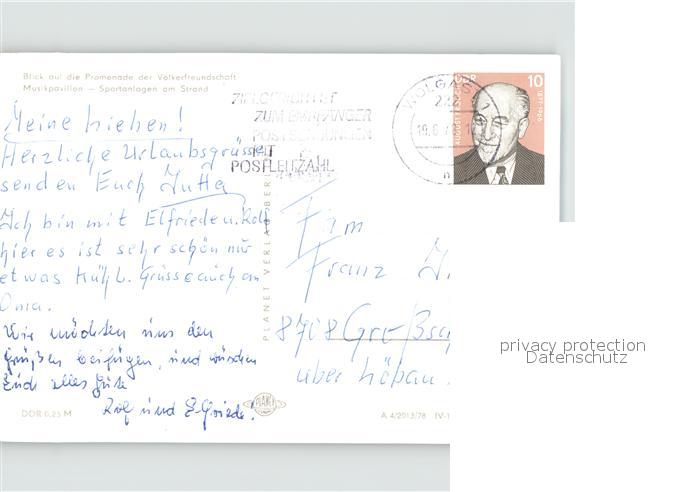 Blick auf die Promenade der Völkerfreundschaft
Musikpavillon – Sportanlagen am Strand
ZIELGERICHTET
ZUM EMPFÄNGER
POSTSENDUNGEN
MIT
POSTLEITZAHL
WOLGAST
222
DDR
10
Meine Lieben!
Herzliche Urlaubsgrüsse
senden Euch Jutta
Ich bin mit Elfriede u. Rolf
hier es ist sehr schön nur
etwas Kühl. Grüsse auch an
Oma.
Wir möchten uns den
Grüßen beifügen, und wünschen
Euch alles Gute
Rolf und Elfriede!
PLANET VERLAG BER
Fam
Franz
8708 Großsc
über Löbau
DDR 0,25 M
PLANET
A 4/2013/78 IV-1
privacy protection
Datenschutz